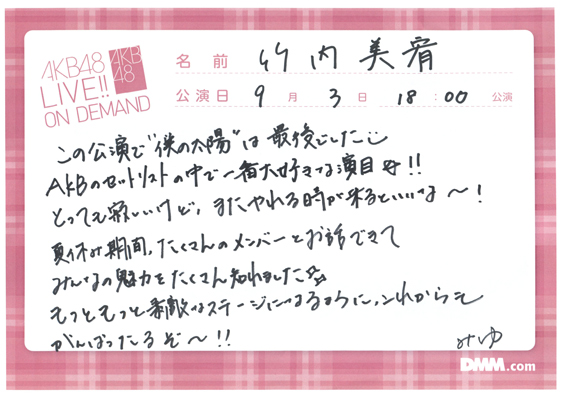 AKB48
LIVE!!
ON DEMAND
AKB
48
名前 竹内美宥
公演日 9月3日 18:00 公演
この公演で"僕の太陽"は最後でした
AKBのセットリストの中で一番大好きな演目!!
とっても寂しいけど、またやれる時が来るといいな〜!
夏休み期間、たくさんのメンバーとお話できて
みんなの魅力をたくさん知れました☆
もっともっと素敵なステージになるように、これからも
がんばったるぞ〜!!
みゆ
DMM.com